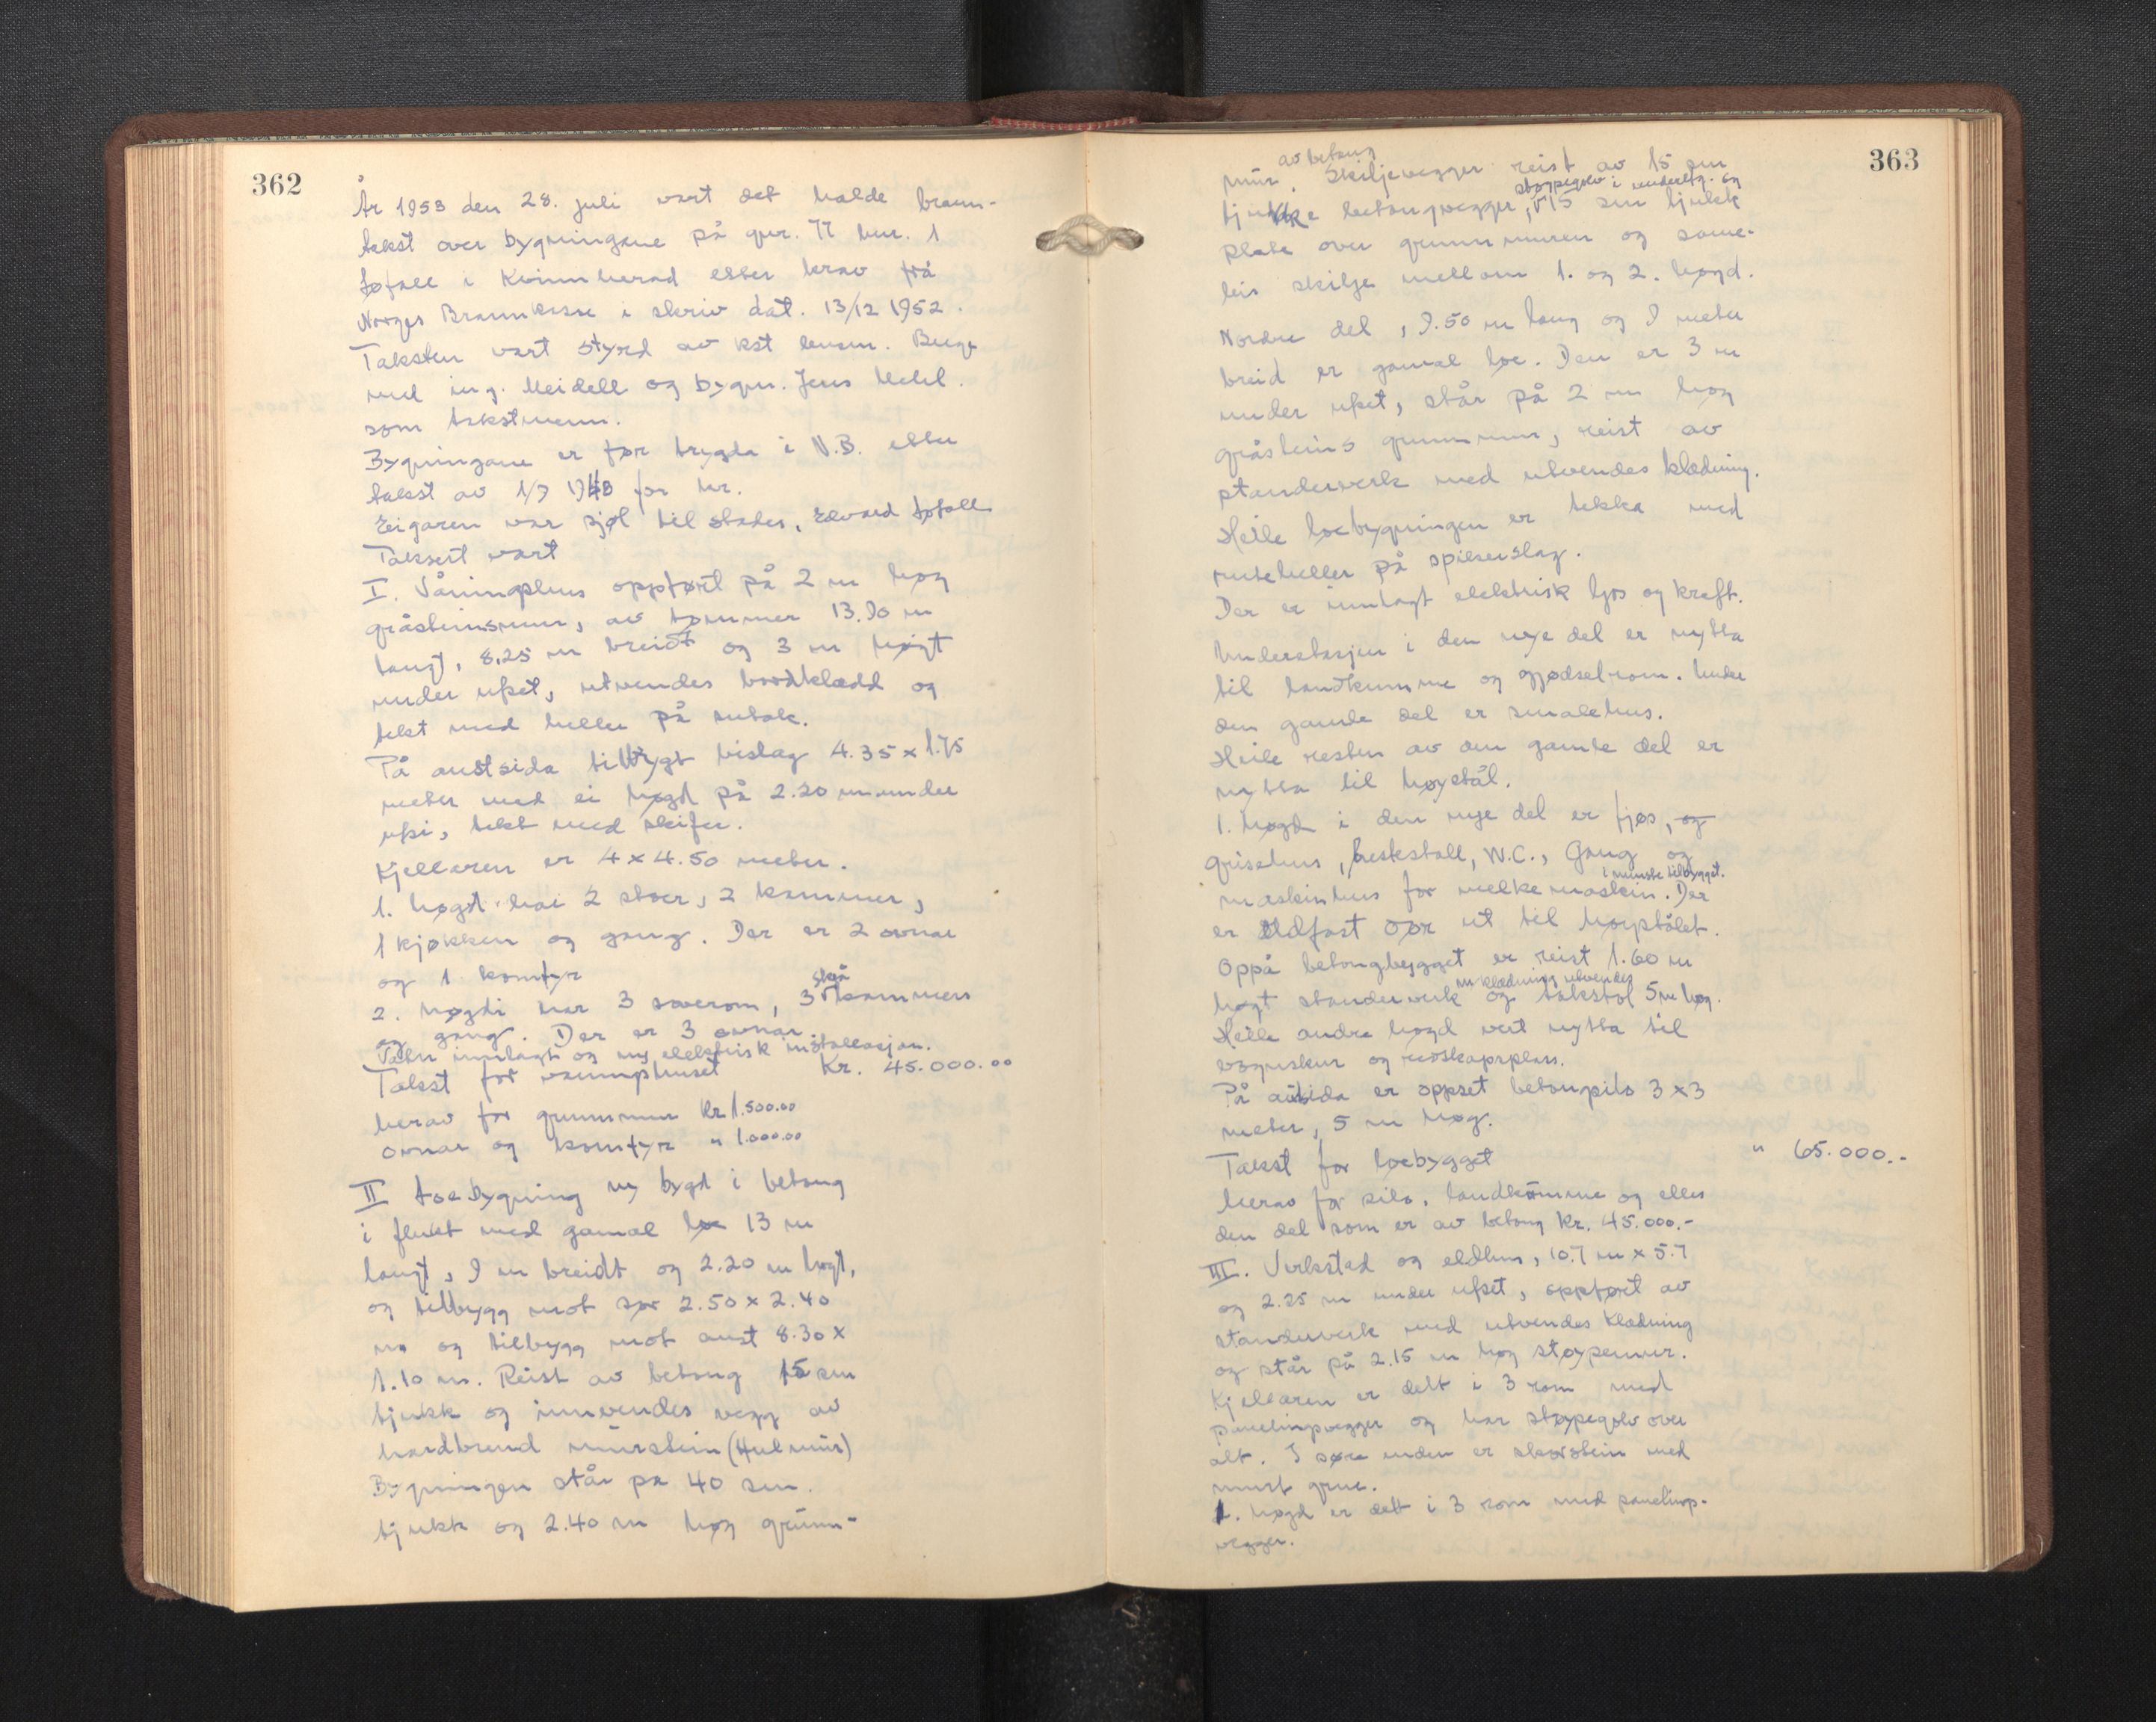 362
År 1953 den 28. juli vart det halde brann-
takst over bygningane på gnr. 77 bnr. 1
Løfall i Kvinnherad etter krav frå
Norges Brannkasse i skriv dat. 13/12 1952.
Taksten vart styrd av kst lensm. Berge
med ing. Meidell og bygm. Jens Mehl.
som takstmenn.
Bygningane er før trygda i N.B. etter
takst av 1/9 1948 for kr.
Eigaren var sjøl til stades, Edvard Løfall
Taksert vart
I. Våningshus oppført på 2 m høg
gråsteinsmur, av tømmer 13.90 m
langt, 8,25 m breidt og 3 m høgt
under ufset, utvendes bordklædd og
tekt med heller på sutak.
På austsida tilbygt bislag 4.35 x 1.75
meter med ei høgd på 2.20 m under
ufsi, tekt med skifer.
Kjellaren er 4 x 4.50 meter.
1. høgd har 2 stoer, 2 kammer,
1 kjøkken og gang. Der er 2 ovnar
og 1 komfyr
2. høgdi har 3 soverom, 3 små kammers
og gang. Der er 3 ovnar.
Vatn innlagt og ny elektrisk installasjon.
Takst for våningshuset Kr. 45.000.00
herav for grunnmur Kr 1.500.00
ovnar og komfyr " 1.000.00
II Løebygning ny bygd i betong
i flukt med gamal løe 13 m
langt, 9 m breidt og 2.20 m høgt,
og tilbygg mot sør 2.50 x 2.40
m og tilbygg mot aust 8.30 x
1.10 m. Reist av betong 15 sm
tjukk og innvendes vegg av
hardbrend murstein (Hulmur)
Bygningen står på 40 sm.
tjukk og 2.40 m høg grunn-
363
mur av betong. Skiljevegger reist av 15 sm
tjukke betongvegger, støypegolv i underetg. og 15 sm tjukk
plate over grunnmuren og same-
leis skilje mellom 1. og 2. høgd.
Nordre del, 9.50 m lang og 9 meter
breid er gamal løe. Den er 3 m
under ufset, står på 2 m høg
gråsteins grunnmur, reist av
standerverk med utvendes klædning.
Heile løebygningen er tekka med
ruteheller på spikerslag.
Der er innlagt elektrisk ljos og kraft.
Underetasjen i den nye del er nytta
til landkumme og gjødselrom. Under
den gamle del er smalehus.
Heile resten av den gamle del er
nytta til høystål.
1. høgd i den nye del er fjøs, og
grisehus, hestestall, W.C., Gang og
maskinhus for melkemaskin i minste tilbygget. Der
er eldfast dør ut til høystålet.
Oppå betongbygget er reist 1.60 m
høgt standerverk m klædning utvendes og takstol 5 m høg.
Heile andre høgd vert nytta til
vognskur og reidskapsplass.
På autsida er oppset betongsilo 3 x 3
meter, 5 m høg.
Takst for løebygget " 65.000.-
herav for silo, landkumme og elles
den del som er av betong Kr. 45.000.-
III. Verkstad og eldhus, 10.7 m x 5.7
og 2.25 m under ufset, oppført av
standerverk med utvendes klædning
og står på 2.15 m høg støypemur.
Kjellaren er delt i 3 rom med
panelingsvegger og har støypegolv over
alt. I søre enden er skorstein med
murt grue.
1. høgd er delt i 3 rom med panelings-
vegger.